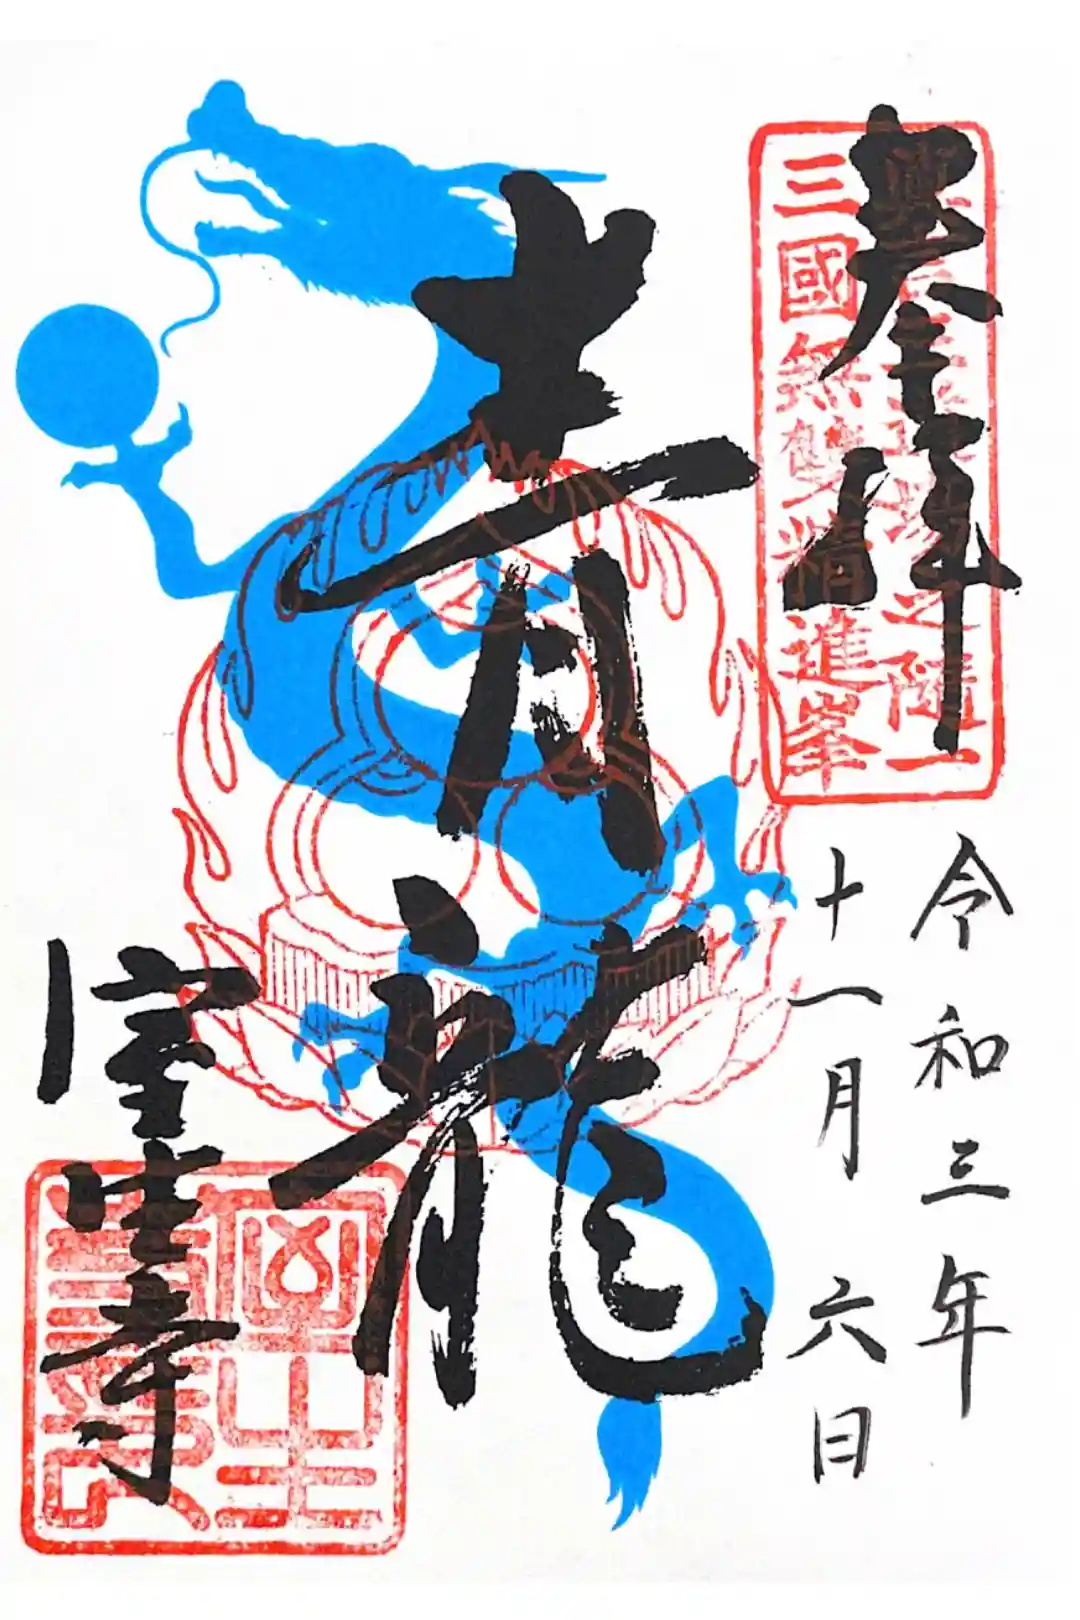 奉拝
三國無雙精進峯
令和三年
十一月六日
青龍
室生寺